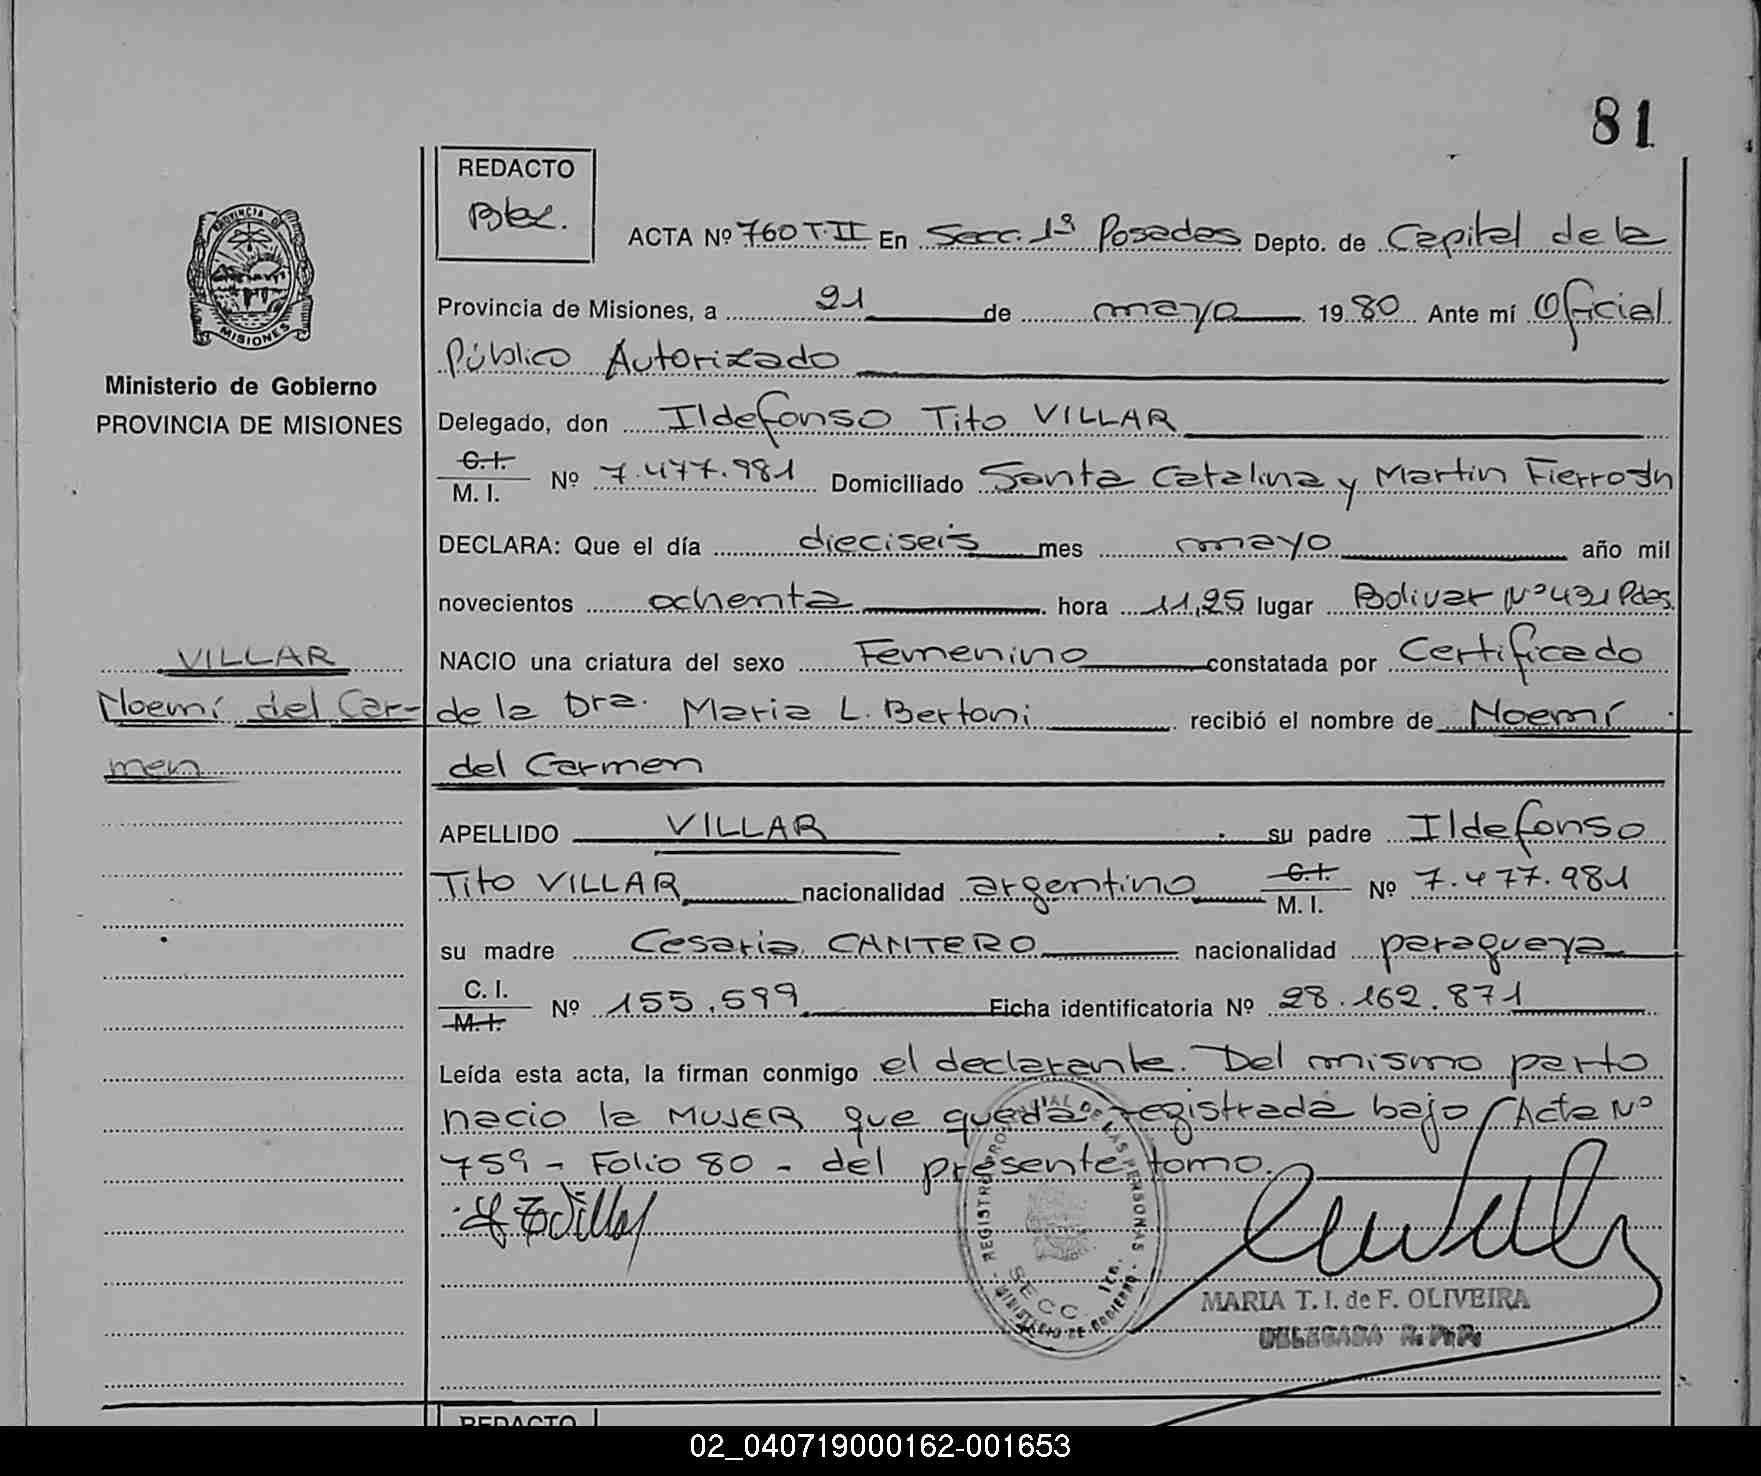 81
REDACTO
ACTA Nº 760 T.II En Secc. 1ª Posadas Depto. de Capital de la
Provincia de Misiones, a 21 de mayo 1980 Ante mí Oficial
Público Autorizado
PROVINCIA DE
MISIONES
Ministerio de Gobierno
PROVINCIA DE MISIONES
Delegado, don Ildefonso Tito VILLAR
C.I.
M. I. Nº 7.477.981 Domiciliado Santa Catalina y Martin Fierro s/n
DECLARA: Que el día dieciseis mes mayo año mil
novecientos ochenta hora 11,25 lugar Bolivar Nº 421 Pdas.
VILLAR
Noemí del Car-
men
NACIO una criatura del sexo Femenino constatada por Certificado
de la Dra. Maria L. Bertoni recibió el nombre de Noemí
del Carmen
APELLIDO VILLAR su padre Ildefonso
Tito VILLAR nacionalidad argentino C.I.
M. I. Nº 7.477.981
su madre Cesaria CANTERO nacionalidad paraguaya
C. I.
M.I. Nº 155.599 Ficha identificatoria Nº 28.162.871
Leída esta acta, la firman conmigo el declarante. Del mismo parto
nacio la MUJER que queda registrada bajo Acta Nº
759 - Folio 80 - del presente tomo.
REGISTRO PROVINCIAL DE LAS PERSONAS
SECC. 1ra.
MINISTERIO DE GOBIERNO
MARIA T. I. de F. OLIVEIRA
DELEGADA R. P. P.
REDACTO
02_040719000162-001653